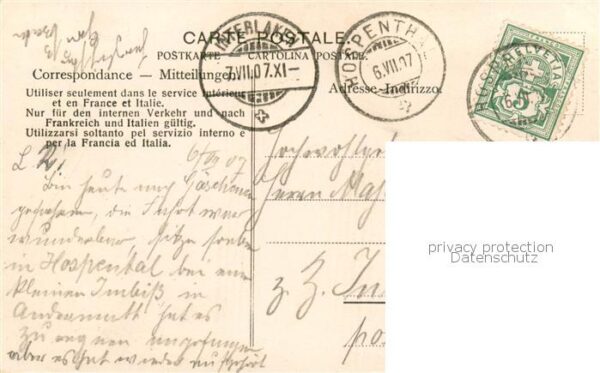 CARTE POSTALE.
POSTKARTE CARTOLINA POSTALE.
Correspondance — Mitteilungen
Adresse-Indirizzo.
Utiliser seulement dans le service intérieur
et en France et Italie.
Nur für den internen Verkehr und nach
Frankreich und Italien gültig.
Utilizzarsi soltanto pel servizio interno e
per la Francia ed Italia.
INTERLAKEN
7.VII.07.XI-
HOSPENTHAL
6.VII.07
HELVETIA
5
L
6/VII 07
Bin heute nach Göschenen
gefahren, die Fahrt war
wunderbar, sitze soeben
in Hospental bei einem
kleinen Imbiß, in
Andermatt hat es
zu regnen angefangen
aber es hat wieder aufgehört
Hochwohlgeb
Herrn
z. Z. In
po
privacy protection
Datenschutz